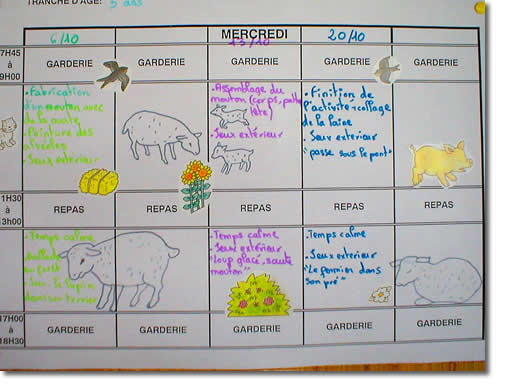 TRANCHE D'AGE: 5 ans
MERCREDI
6/10
13/10
20/10
7H45
à
9H00
GARDERIE
GARDERIE
GARDERIE
GARDERIE
GARDERIE
•Fabrication
d'un mouton avec
de la
•Peinture des
•Jeux extérieur
•Assemblage du
mouton (corps, patte
tête)
•Jeux extérieur
•Finition de
l'activité: collage
de la laine
•Jeux exterieur
"passe sous le pont"
1H30
à
13h00
REPAS
REPAS
REPAS
REPAS
REPAS
•Temps calme
en forêt
sapin
dans son terrier
•Temps calme
•Jeux extérieur,
"loup glacé, saute
mouton"
•Temps calme.
•Jeux exterieur
"Le fermier dans
son pré"
17H00
à
18H30
GARDERIE
GARDERIE
GARDERIE
GARDERIE
GARDERIE